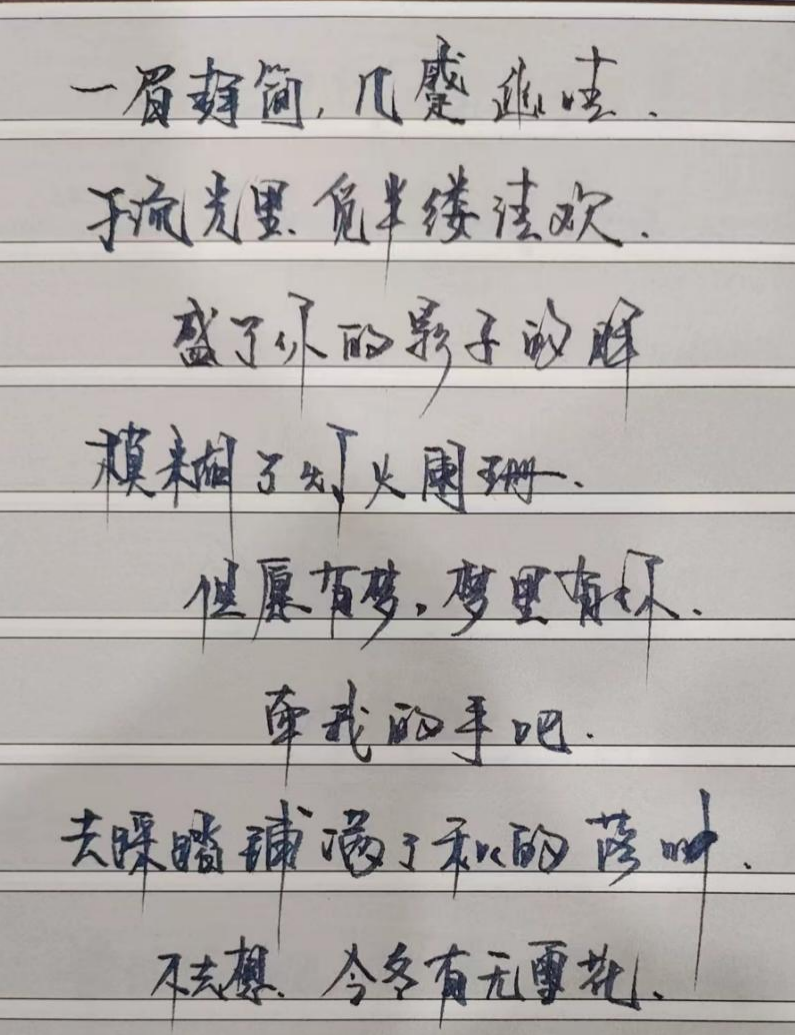 一眉封简，几蹙遐哇.
于流光里、觅半缕清欢.
盛了你的影子的眸
模糊了灯火阑珊.
但愿有梦，梦里有你.
牵我的手吧.
去踩踏铺满了秋的落叶.
不去想、今冬有无雪花、